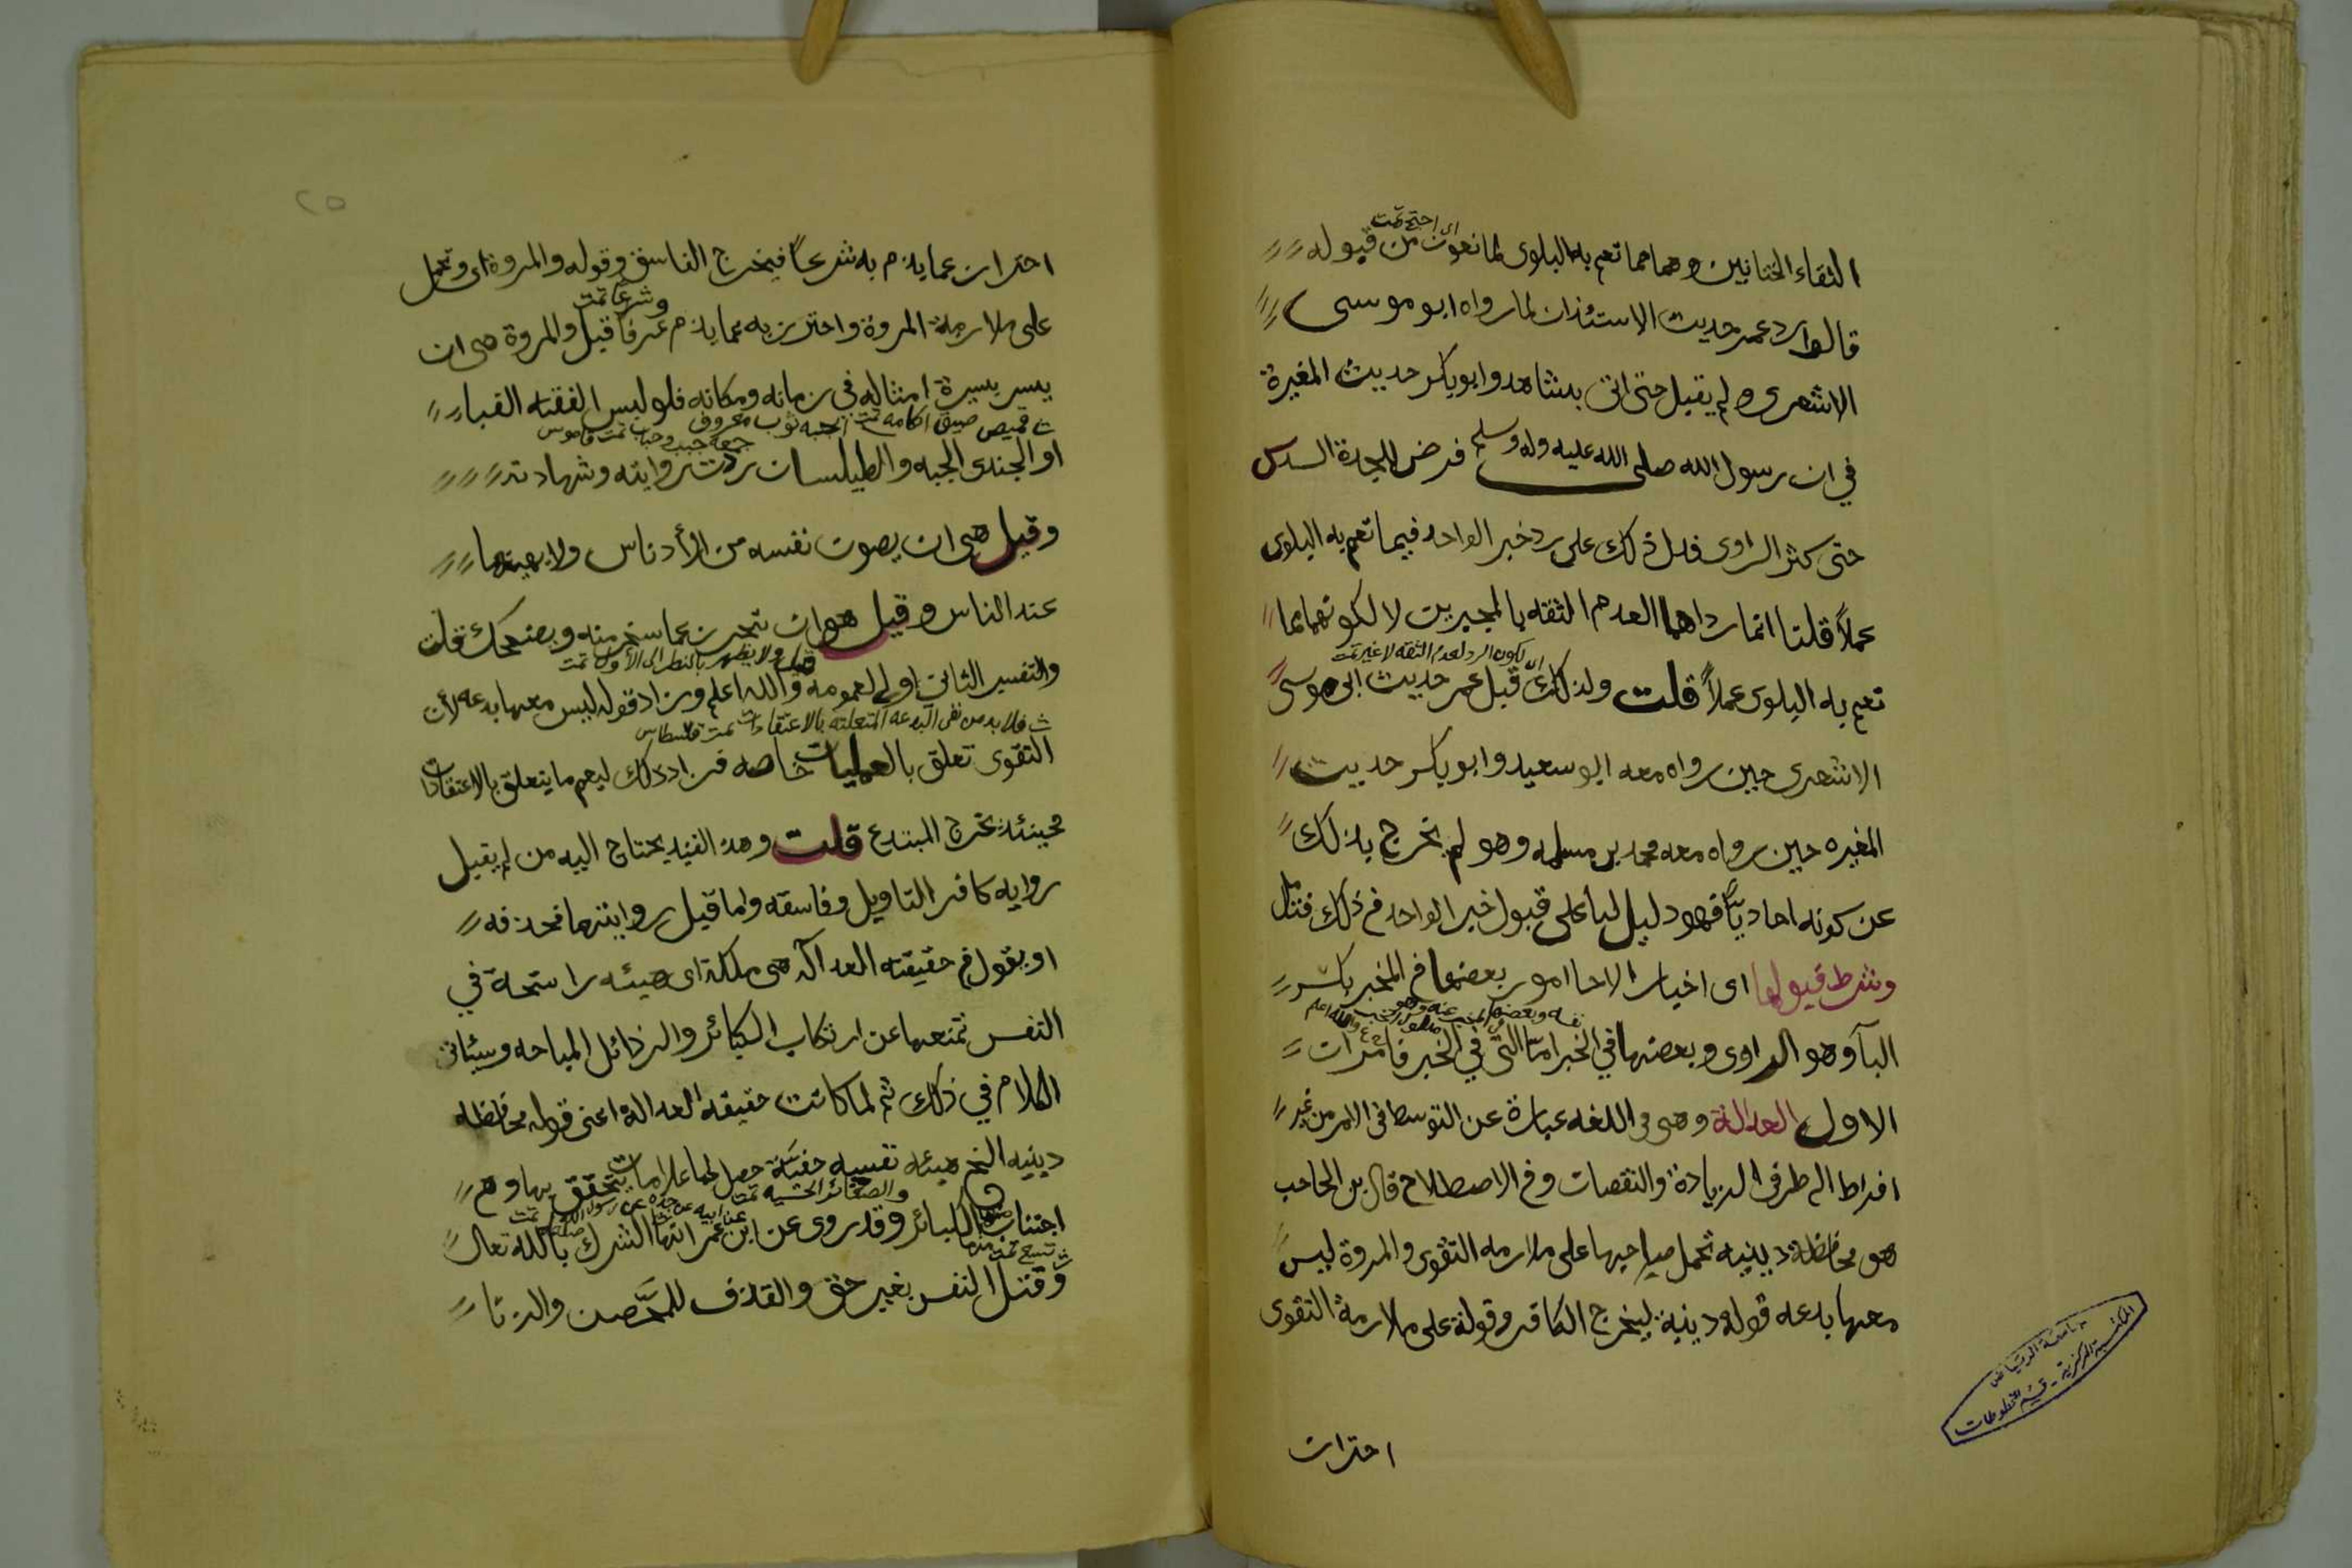 اى احتج تمت
التقاء الختانين وهما مما تعم به البلوى لما نعون من قبوله
قالوا رد عمر حديث الاستئذان لما رواه ابو موسى
الاشعرى ولم يقبل حتى اتى بمن شاهد وابو بكر حديث المغيرة
في ان رسول الله صلى الله عليه وله وسلم فرض للجدة السدس
حتى كثر الراوى فدل ذلك على رد خبر الواحد فيما تعم به البلوى
عملاً قلنا انما رداهما لعدم الثقه بالمجبرين لا لكونهما مما
اى لكون الرد لعدم الثقه لا غير تمت
تعم به البلوى عملاً قلت ولذلك قبل عمر حديث ابى موسى
الاشعرى حين رواه معه ابو سعيد وابو بكر حديث
المغيره حين رواه معه محمد بن مسلمه وهو لم يخرج بذلك
عن كونه احاديًّا فهو دليل لنا على قبول خبر الواحد في ذلك فتامل
وشرط قبولها اى اخبار الاحا امور بعضها في المخبر بكسر
البآ وهو الراوى وبعضها في الخبر امّا التى في المخبر فامرات
الاول العدالة وهى في اللغه عبارة عن التوسط في الامر من غير
افراط الى طرفى الزيادة والنقصات وفي الاصطلاح قال بن الحاجب
هو محافظة دينيه تحمل صاحبها على ملازمه التقوى والمروة ليس
معها بدعه قوله دينية ليخرج الكافر وقوله على ملازمة التقوى
احترات
المكتبة المركزية - قسم المخطوطات
جامعة الرياض
٢٥
احتران عما يذم به شرعاً فيخرج الفاسق وقوله والمروة اى وتحمل
وشرعًا تمت
على ملازمة المروة واحترز به عما يذم عرفا قيل والمروة هى ان
يسير بسيرة امثاله في زمانه ومكانه فلو لبس الفقيه القباء
قميص ضيق اكامه تمت الجبه ثوب معروف
جمعه جبب وجباب تمت قاموس
او الجندى الجبه والطيلسان ردت روايته وشهادته
وقيل هى ان يصون نفسه من الأدناس ولا يهينها
عند الناس وقيل هو ان تتحرز عما سخر منه ويضحك قلت
قيل ولا يظهر بالنظر الى الأول تمت
والتفسير الثانى اولى لعمومه والله اعلم وزاد قوله ليس معها بدعه لأن
فلا بد من نفى البدعه المتعلقه بالاعتقادات تمت قسطاس
التقوى تعلق بالعمليات خاصه فزاد ذلك ليعم ما يتعلق بالاعتقادات
فحينئذ يخرج المبتدع قلت وهذا القيد يحتاج اليه من لم يقبل
روايه كافر التاويل وفاسقه واما قبل روايتهما فحذفه
او يقول في حقيقته العداله هى ملكة اى هيئه راسخة في
النفس تمنعها عن ارتكاب الكبائر والرذائل المباحه وسيئاتى
الكلام في ذلك ثم لما كانت حقيقه العدالة اعنى قوله محافظه
دينيه الخ هيئه نفسيه خفيّة جعل لها علامات يتحقق بها وهى
والصغائر الخسيه تمت عن ابيه عن جده عن رسول الله تمت
اجتناب الكبائر وقد روى عن ابن عمر انها الشرك بالله تعالى
وقتل النفس بغير حق والقذف للمحّصن والزنا